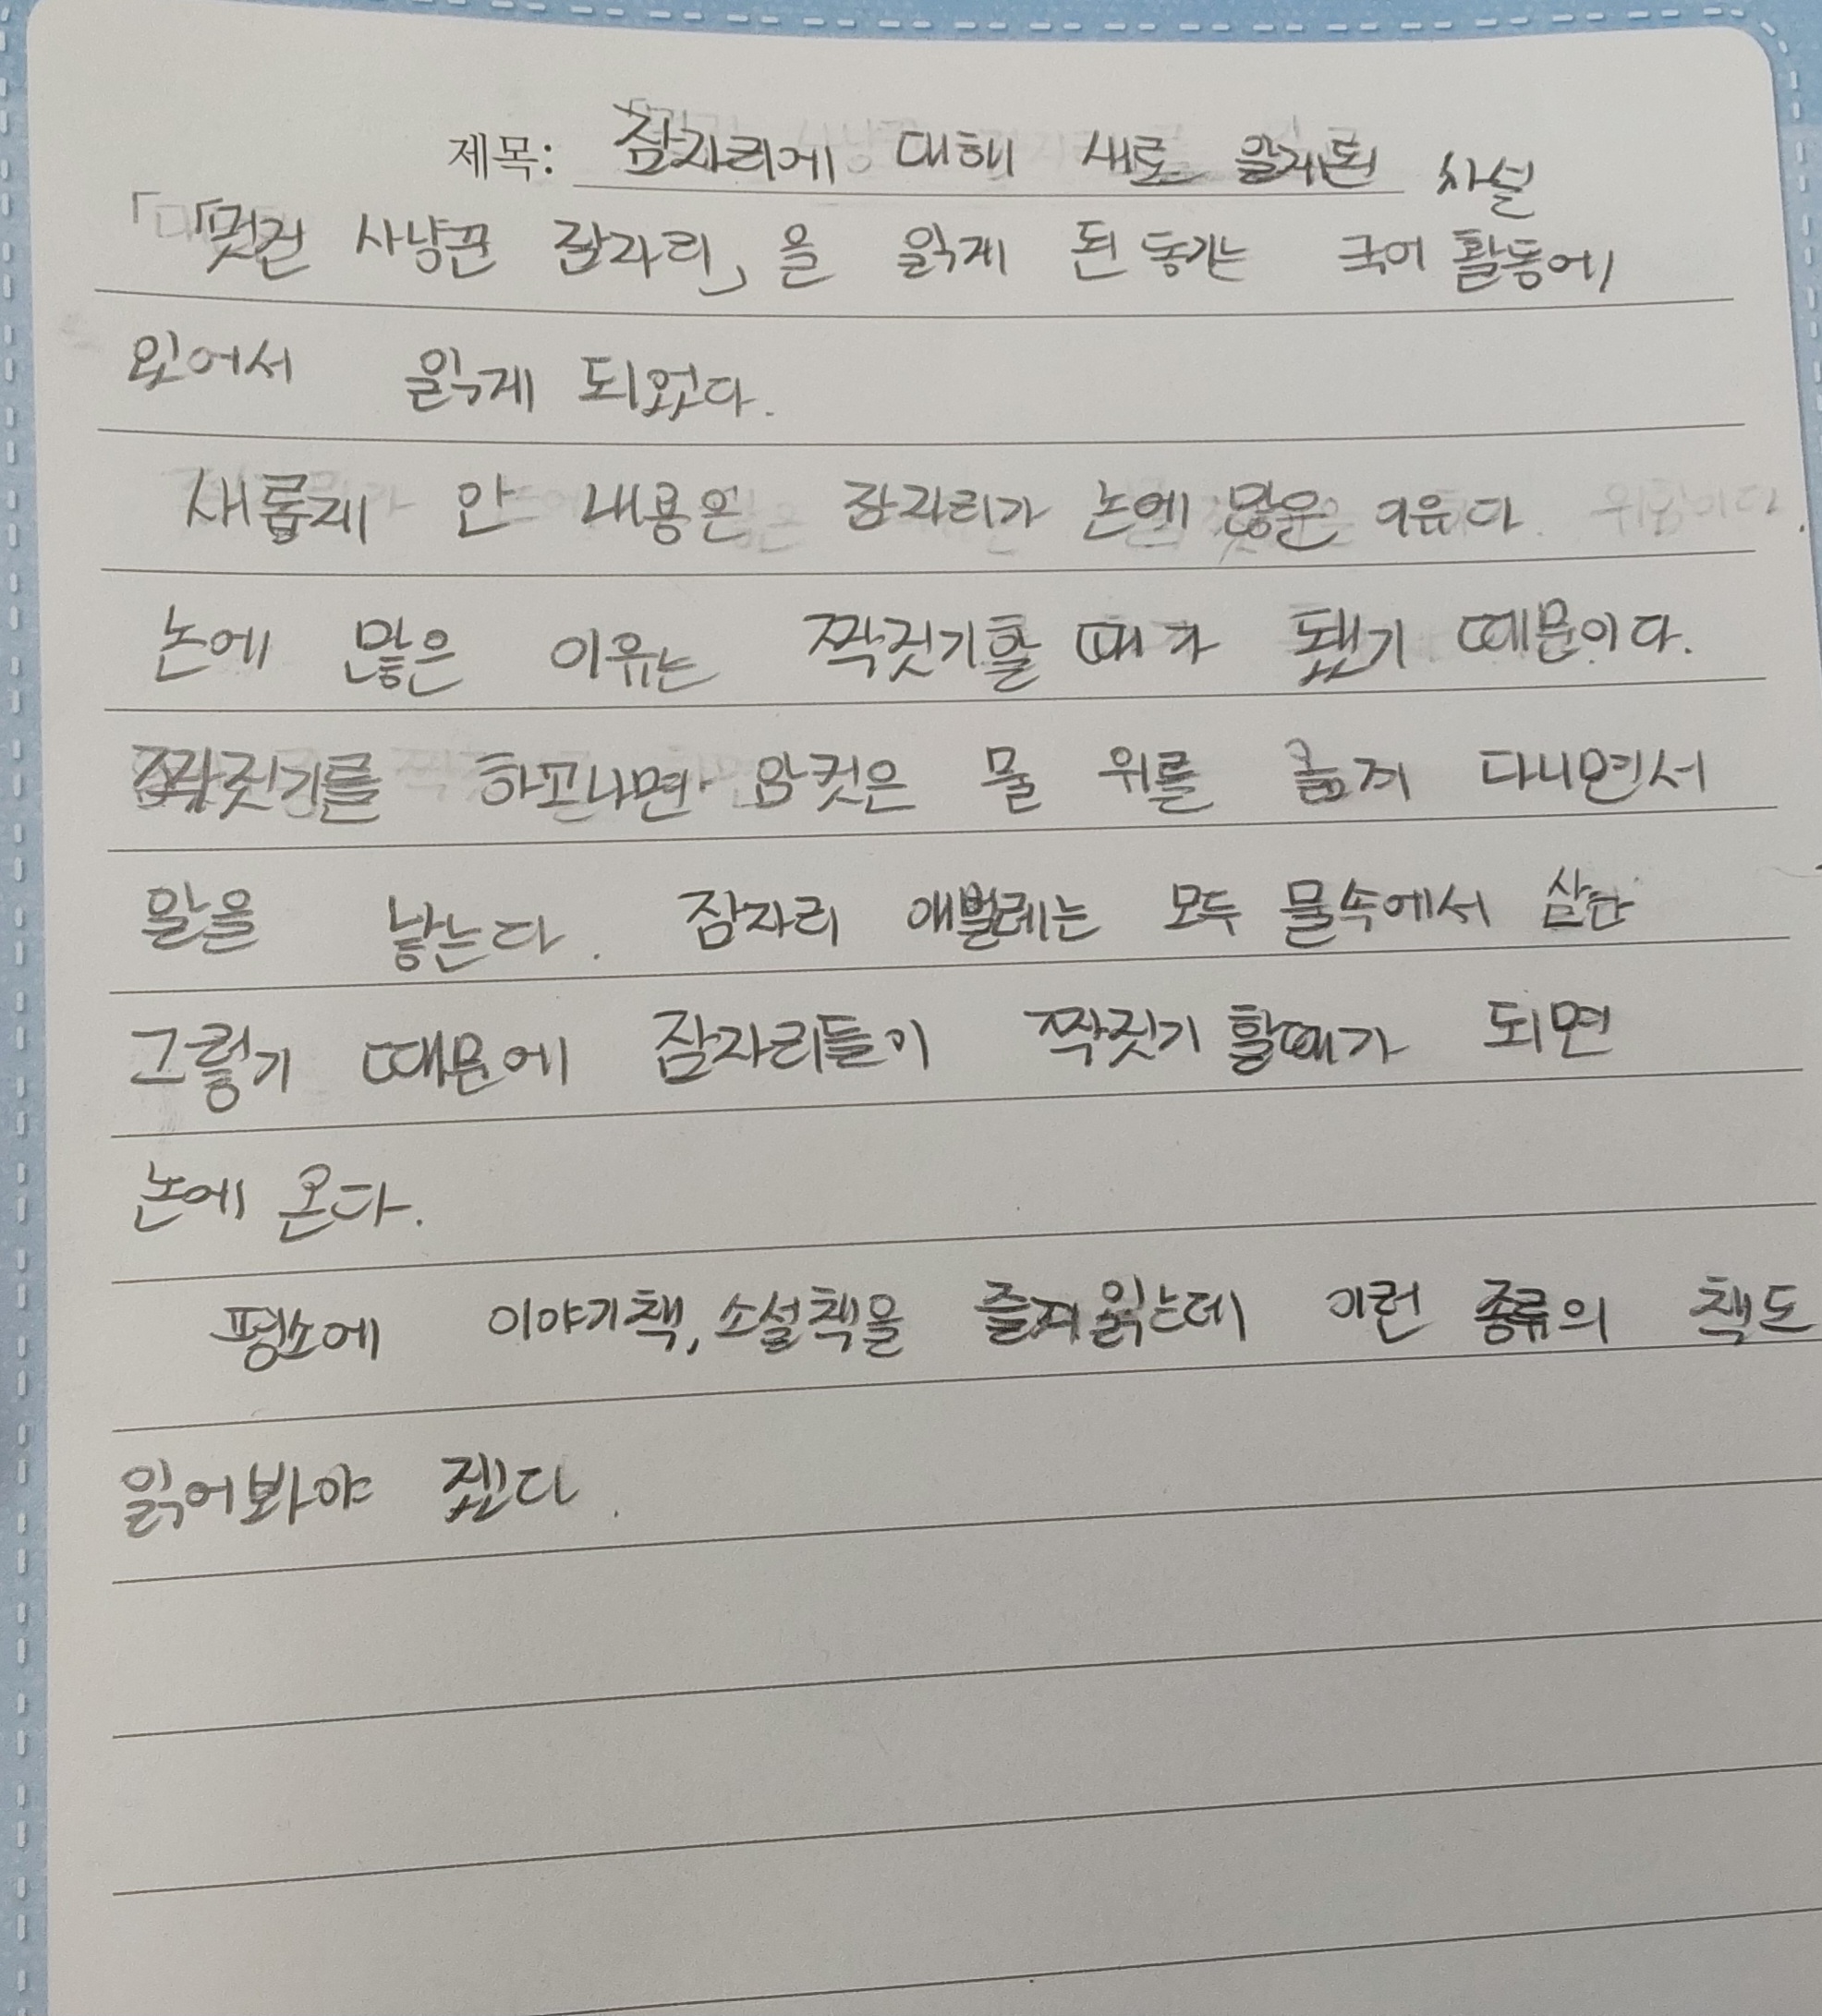 제목: 잠자리에 대해 새로 알게된 사실
「멋진 사냥꾼 잠자리」을 읽게 된 동기는 국어 활동에
있어서 읽게 되었다.
새롭게 안 내용은 잠자리가 논에 많은 이유다.
논에 많은 이유는 짝짓기할 때가 됐기 때문이다.
짝짓기를 하고나면 암컷은 물 위를 낮게 다니면서
알을 낳는다. 잠자리 애벌레는 모두 물속에서 산다
그렇기 때문에 잠자리들이 짝짓기 할때가 되면
논에 온다.
평소에 이야기책, 소설책을 즐겨 읽는데 이런 종류의 책도
읽어봐야 겠다.